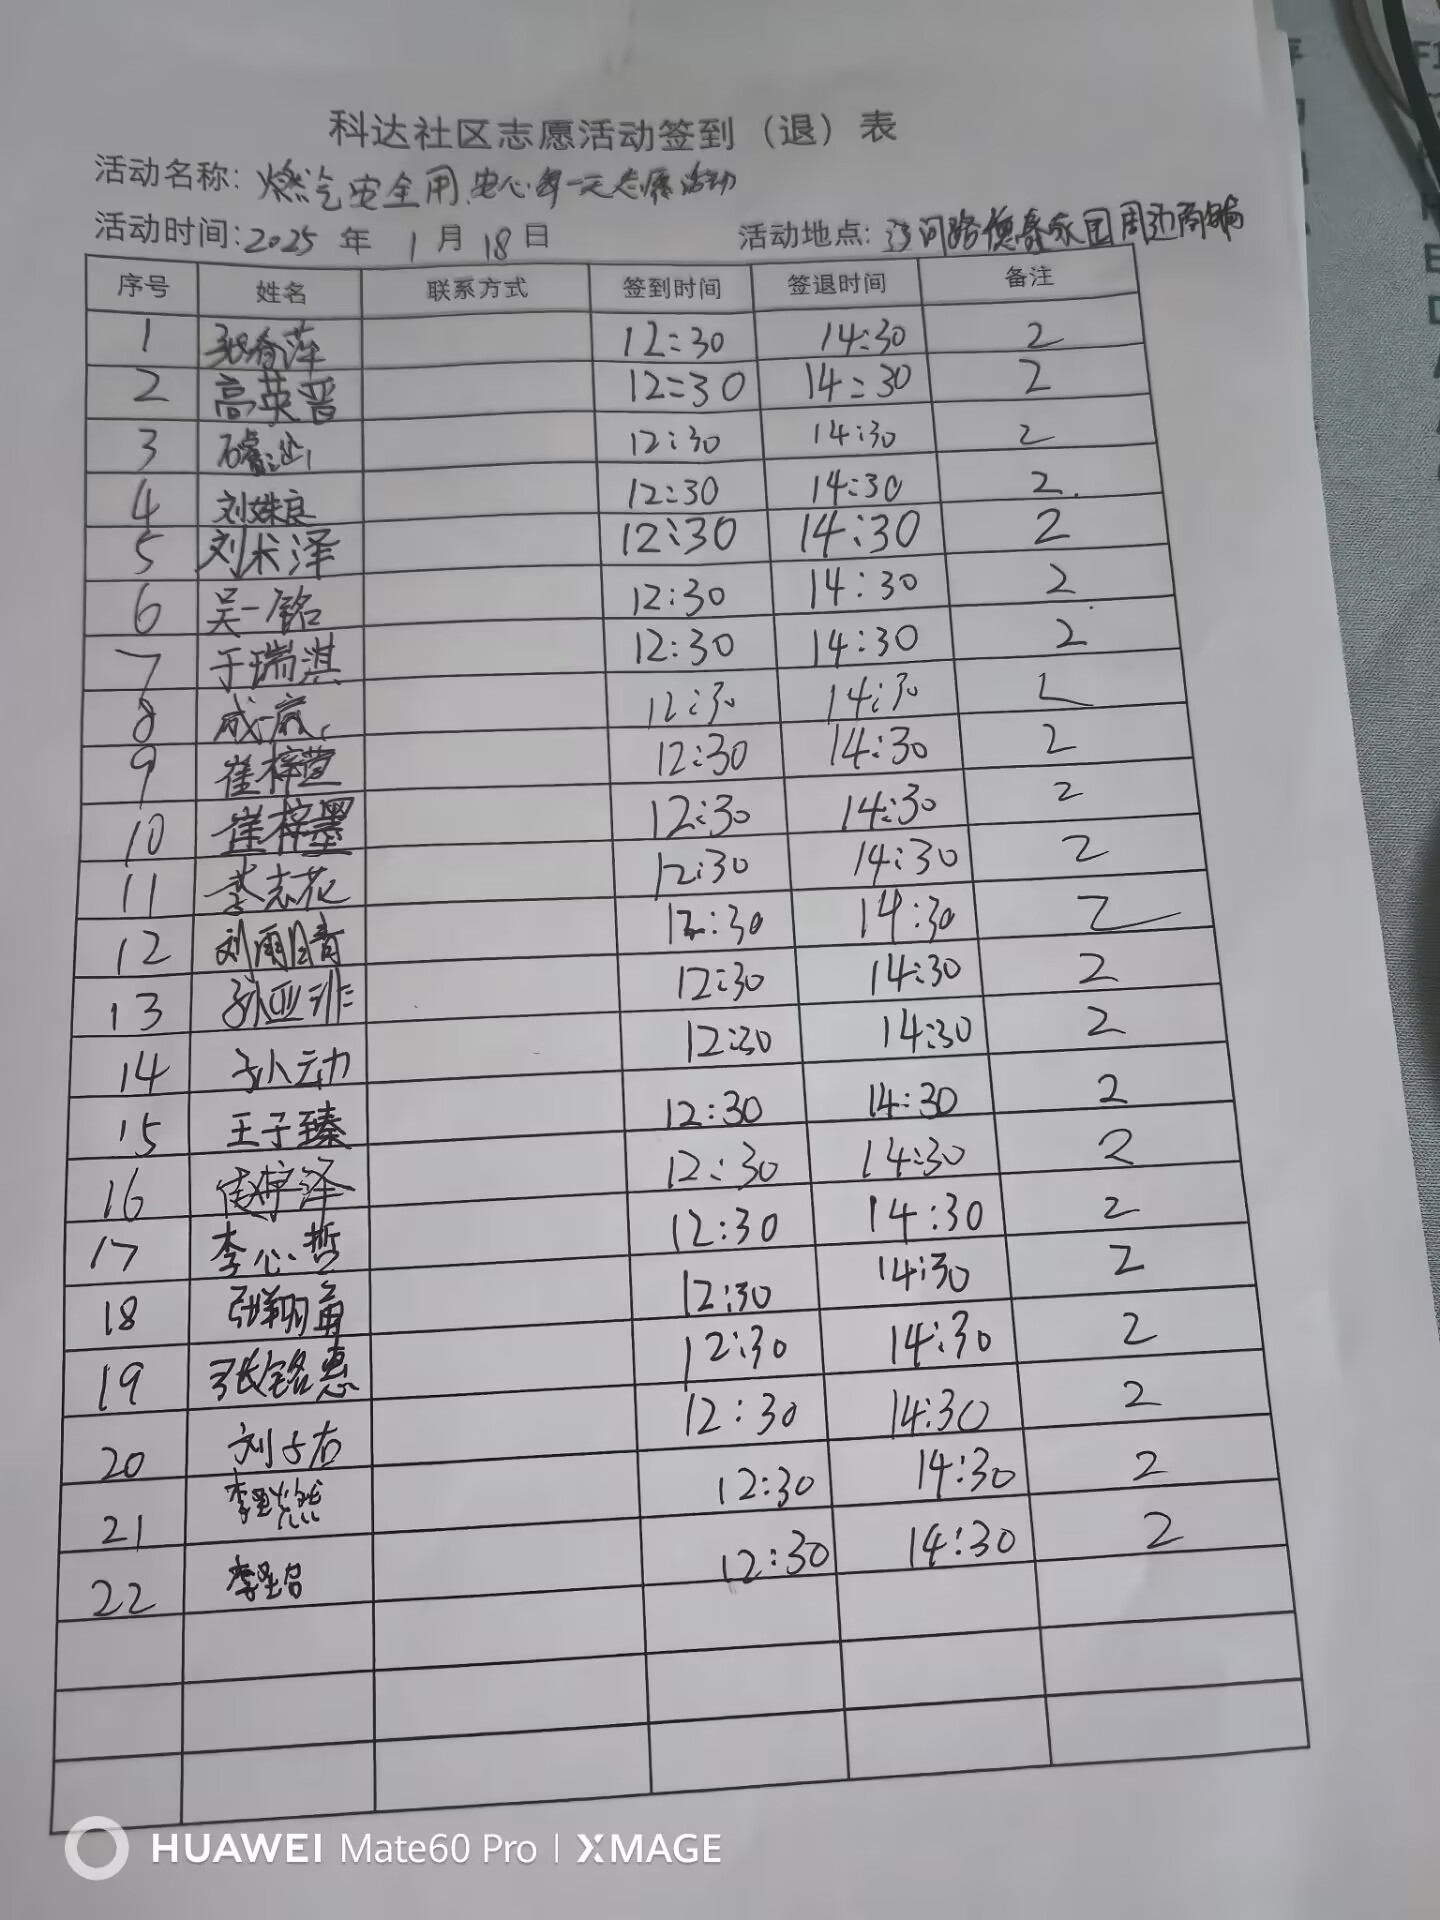 科达社区志愿活动签到（退）表
活动名称: 燃气安全用,安心每一天志愿活动
活动时间: 2025 年 1 月 18 日 活动地点: 路德馨家园周边商铺
序号 姓名 联系方式 签到时间 签退时间 备注
1 张春萍 12:30 14:30 2
2 高英晋 12:30 14:30 2
3 12:30 14:30 2
4 刘姝良 12:30 14:30 2
5 刘长泽 12:30 14:30 2
6 吴一铭 12:30 14:30 2
7 于瑞淇 12:30 14:30 2
8 成一 12:30 14:30 2
9 崔梓萱 12:30 14:30 2
10 崔梓墨 12:30 14:30 2
11 李志花 12:30 14:30 2
12 刘雨晴 12:30 14:30 2
13 孙亚非 12:30 14:30 2
14 孙云动 12:30 14:30 2
15 王子臻 12:30 14:30 2
16 泽 12:30 14:30 2
17 李心哲 12:30 14:30 2
18 张翔 12:30 14:30 2
19 张铭惠 12:30 14:30 2
20 刘子右 12:30 14:30 2
21 李 燃 12:30 14:30 2
22 李 12:30 14:30 2
HUAWEI Mate60 Pro | XMAGE